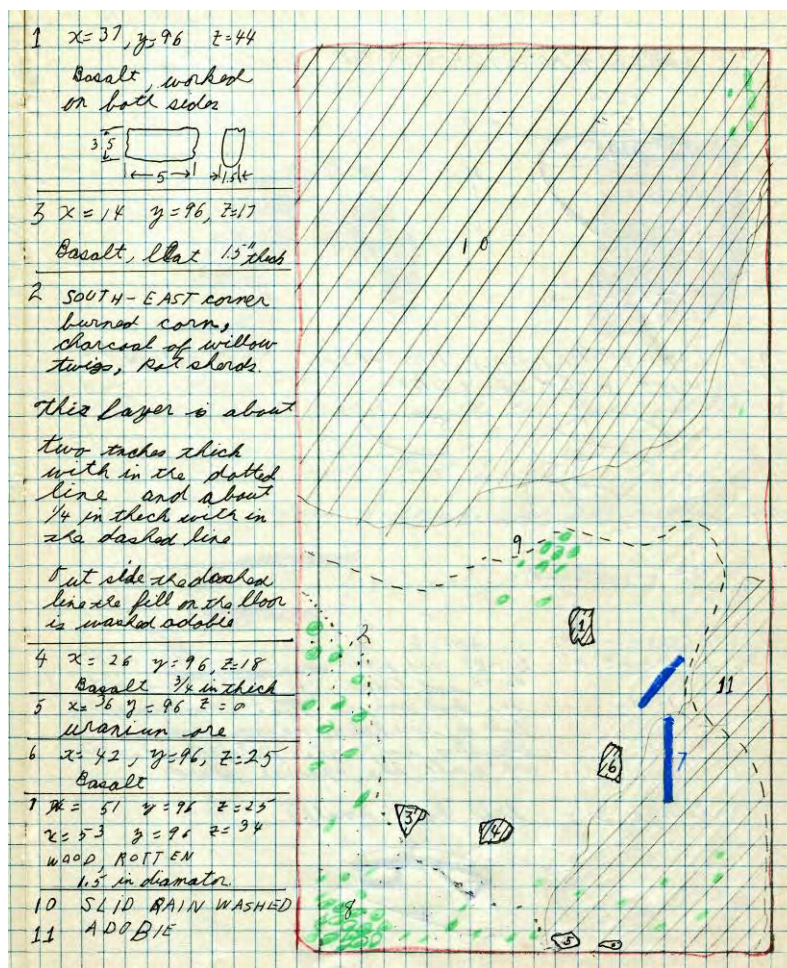 1 x=37, y=96 z=44
Basalt, worked
on both sides
3.5
5
1.5
3 x = 14 y=96, z=17
Basalt, flat 1.5" thick
2 SOUTH-EAST corner
burned corn,
charcoal of willow
twigs, Pot sherds.
This layer is about
two inches thick
with in the dotted
line and about
1/4 in thech with in
the dashed line
Out side the dashed
line the fill on the floor
is washed adobie
4 x = 26 y=96, z=18
Basalt 3/4 in thick
5 x= 36 y=96 z = 0
uranium ore
6 x= 42, y=96, z=25
Basalt
7 x= 51 y=96 z=25
x=53 y=96 z= 34
WOOD, ROTTEN
1.5 in diamator
10 SLID RAIN WASHED
11 ADOBIE
10
9
2
1
11
6
7
3
4
8
5